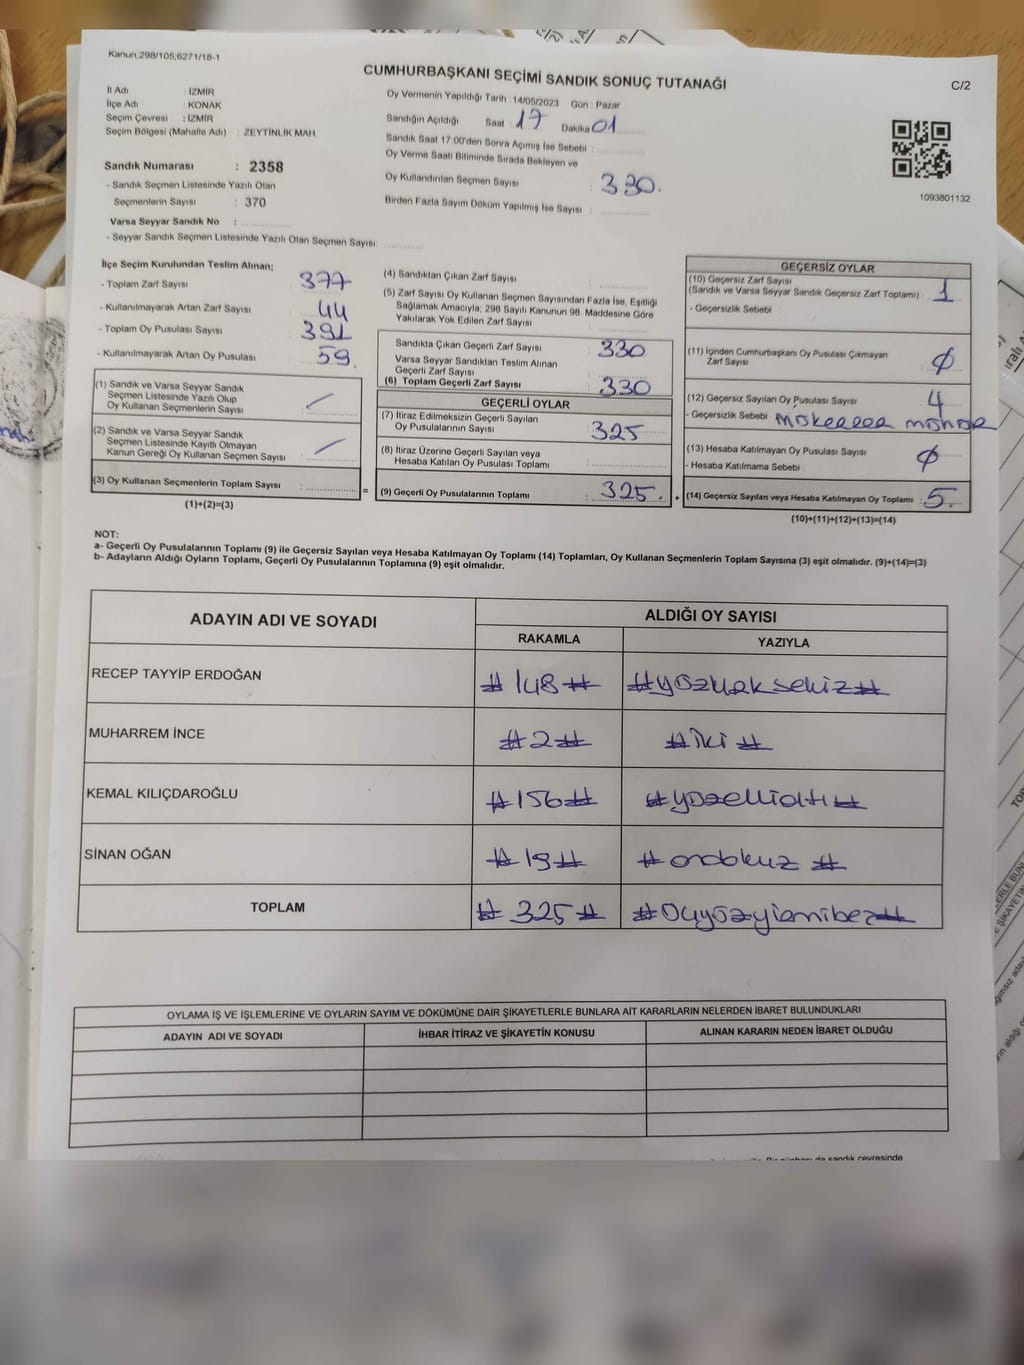 Kanun:298/105,6271/18-1
CUMHURBAŞKANI SEÇİMİ SANDIK SONUÇ TUTANAĞI
C/2
İl Adı : İZMİR
İlçe Adı : KONAK
Seçim Çevresi : İZMİR
Seçim Bölgesi (Mahalle Adı) : ZEYTİNLİK MAH.
Oy Vermenin Yapıldığı Tarih : 14/05/2023 Gün : Pazar
Sandığın Açıldığı Saat : 17 Dakika 01
Sandık Saat 17:00'den Sonra Açımış İse Sebebi :
Oy Verme Saati Bitiminde Sırada Bekleyen ve
Oy Kullandırılan Seçmen Sayısı : 330.
Birden Fazla Sayım Döküm Yapılmış İse Sayısı :
1093801132
Sandık Numarası : 2358
- Sandık Seçmen Listesinde Yazılı Olan
Seçmenlerin Sayısı : 370
Varsa Seyyar Sandık No :
- Seyyar Sandık Seçmen Listesinde Yazılı Olan Seçmen Sayısı:
İlçe Seçim Kurulundan Teslim Alınan;
- Toplam Zarf Sayısı 377
- Kullanılmayarak Artan Zarf Sayısı 44
- Toplam Oy Pusulası Sayısı 391
- Kullanılmayarak Artan Oy Pusulası 59.
(1) Sandık ve Varsa Seyyar Sandık
Seçmen Listesinde Yazılı Olup
Oy Kullanan Seçmenlerin Sayısı
(2) Sandık ve Varsa Seyyar Sandık
Seçmen Listesinde Kayıtlı Olmayan
Kanun Gereği Oy Kullanan Seçmen Sayısı
(3) Oy Kullanan Seçmenlerin Toplam Sayısı : =
(1)+(2)=(3)
(4) Sandıktan Çıkan Zarf Sayısı
(5) Zarf Sayısı Oy Kullanan Seçmen Sayısından Fazla İse, Eşitliği
Sağlamak Amacıyla, 298 Sayılı Kanunun 98. Maddesine Göre
Yakılarak Yok Edilen Zarf Sayısı
Sandıkta Çıkan Geçerli Zarf Sayısı : 330
Varsa Seyyar Sandıktan Teslim Alınan
Geçerli Zarf Sayısı
(6) Toplam Geçerli Zarf Sayısı : 330
GEÇERLİ OYLAR
(7) İtiraz Edilmeksizin Geçerli Sayılan
Oy Pusulalarının Sayısı : 325
(8) İtiraz Üzerine Geçerli Sayılan veya
Hesaba Katılan Oy Pusulası Toplamı :
(9) Geçerli Oy Pusulalarının Toplamı : 325. +
GEÇERSİZ OYLAR
(10) Geçersiz Zarf Sayısı
(Sandık ve Varsa Seyyar Sandık Geçersiz Zarf Toplamı) : 1
- Geçersizlik Sebebi
(11) İçinden Cumhurbaşkanı Oy Pusulası Çıkmayan
Zarf Sayısı : Ø
(12) Geçersiz Sayılan Oy Pusulası Sayısı : 4
- Geçersizlik Sebebi
(13) Hesaba Katılmayan Oy Pusulası Sayısı : Ø
- Hesaba Katılmama Sebebi :
(14) Geçersiz Sayılan veya Hesaba Katılmayan Oy Toplamı : 5.
(10)+(11)+(12)+(13)=(14)
NOT:
a- Geçerli Oy Pusulalarının Toplamı (9) ile Geçersiz Sayılan veya Hesaba Katılmayan Oy Toplamı (14) Toplamları, Oy Kullanan Seçmenlerin Toplam Sayısına (3) eşit olmalıdır. (9)+(14)=(3)
b- Adayların Aldığı Oyların Toplamı, Geçerli Oy Pusulalarının Toplamına (9) eşit olmalıdır.
ADAYIN ADI VE SOYADI ALDIĞI OY SAYISI
RAKAMLA YAZIYLA
RECEP TAYYİP ERDOĞAN #148# #yüzkırksekiz#
MUHARREM İNCE #2# #iki#
KEMAL KILIÇDAROĞLU #156# #yüzellialtı#
SİNAN OĞAN #19# #ondokuz#
TOPLAM #325# #üçyüzyirmibeş#
OYLAMA İŞ VE İŞLEMLERİNE VE OYLARIN SAYIM VE DÖKÜMÜNE DAİR ŞİKAYETLERLE BUNLARA AİT KARARLARIN NELERDEN İBARET BULUNDUKLARI
ADAYIN ADI VE SOYADI İHBAR İTİRAZ VE ŞİKAYETİN KONUSU ALINAN KARARIN NEDEN İBARET OLDUĞU